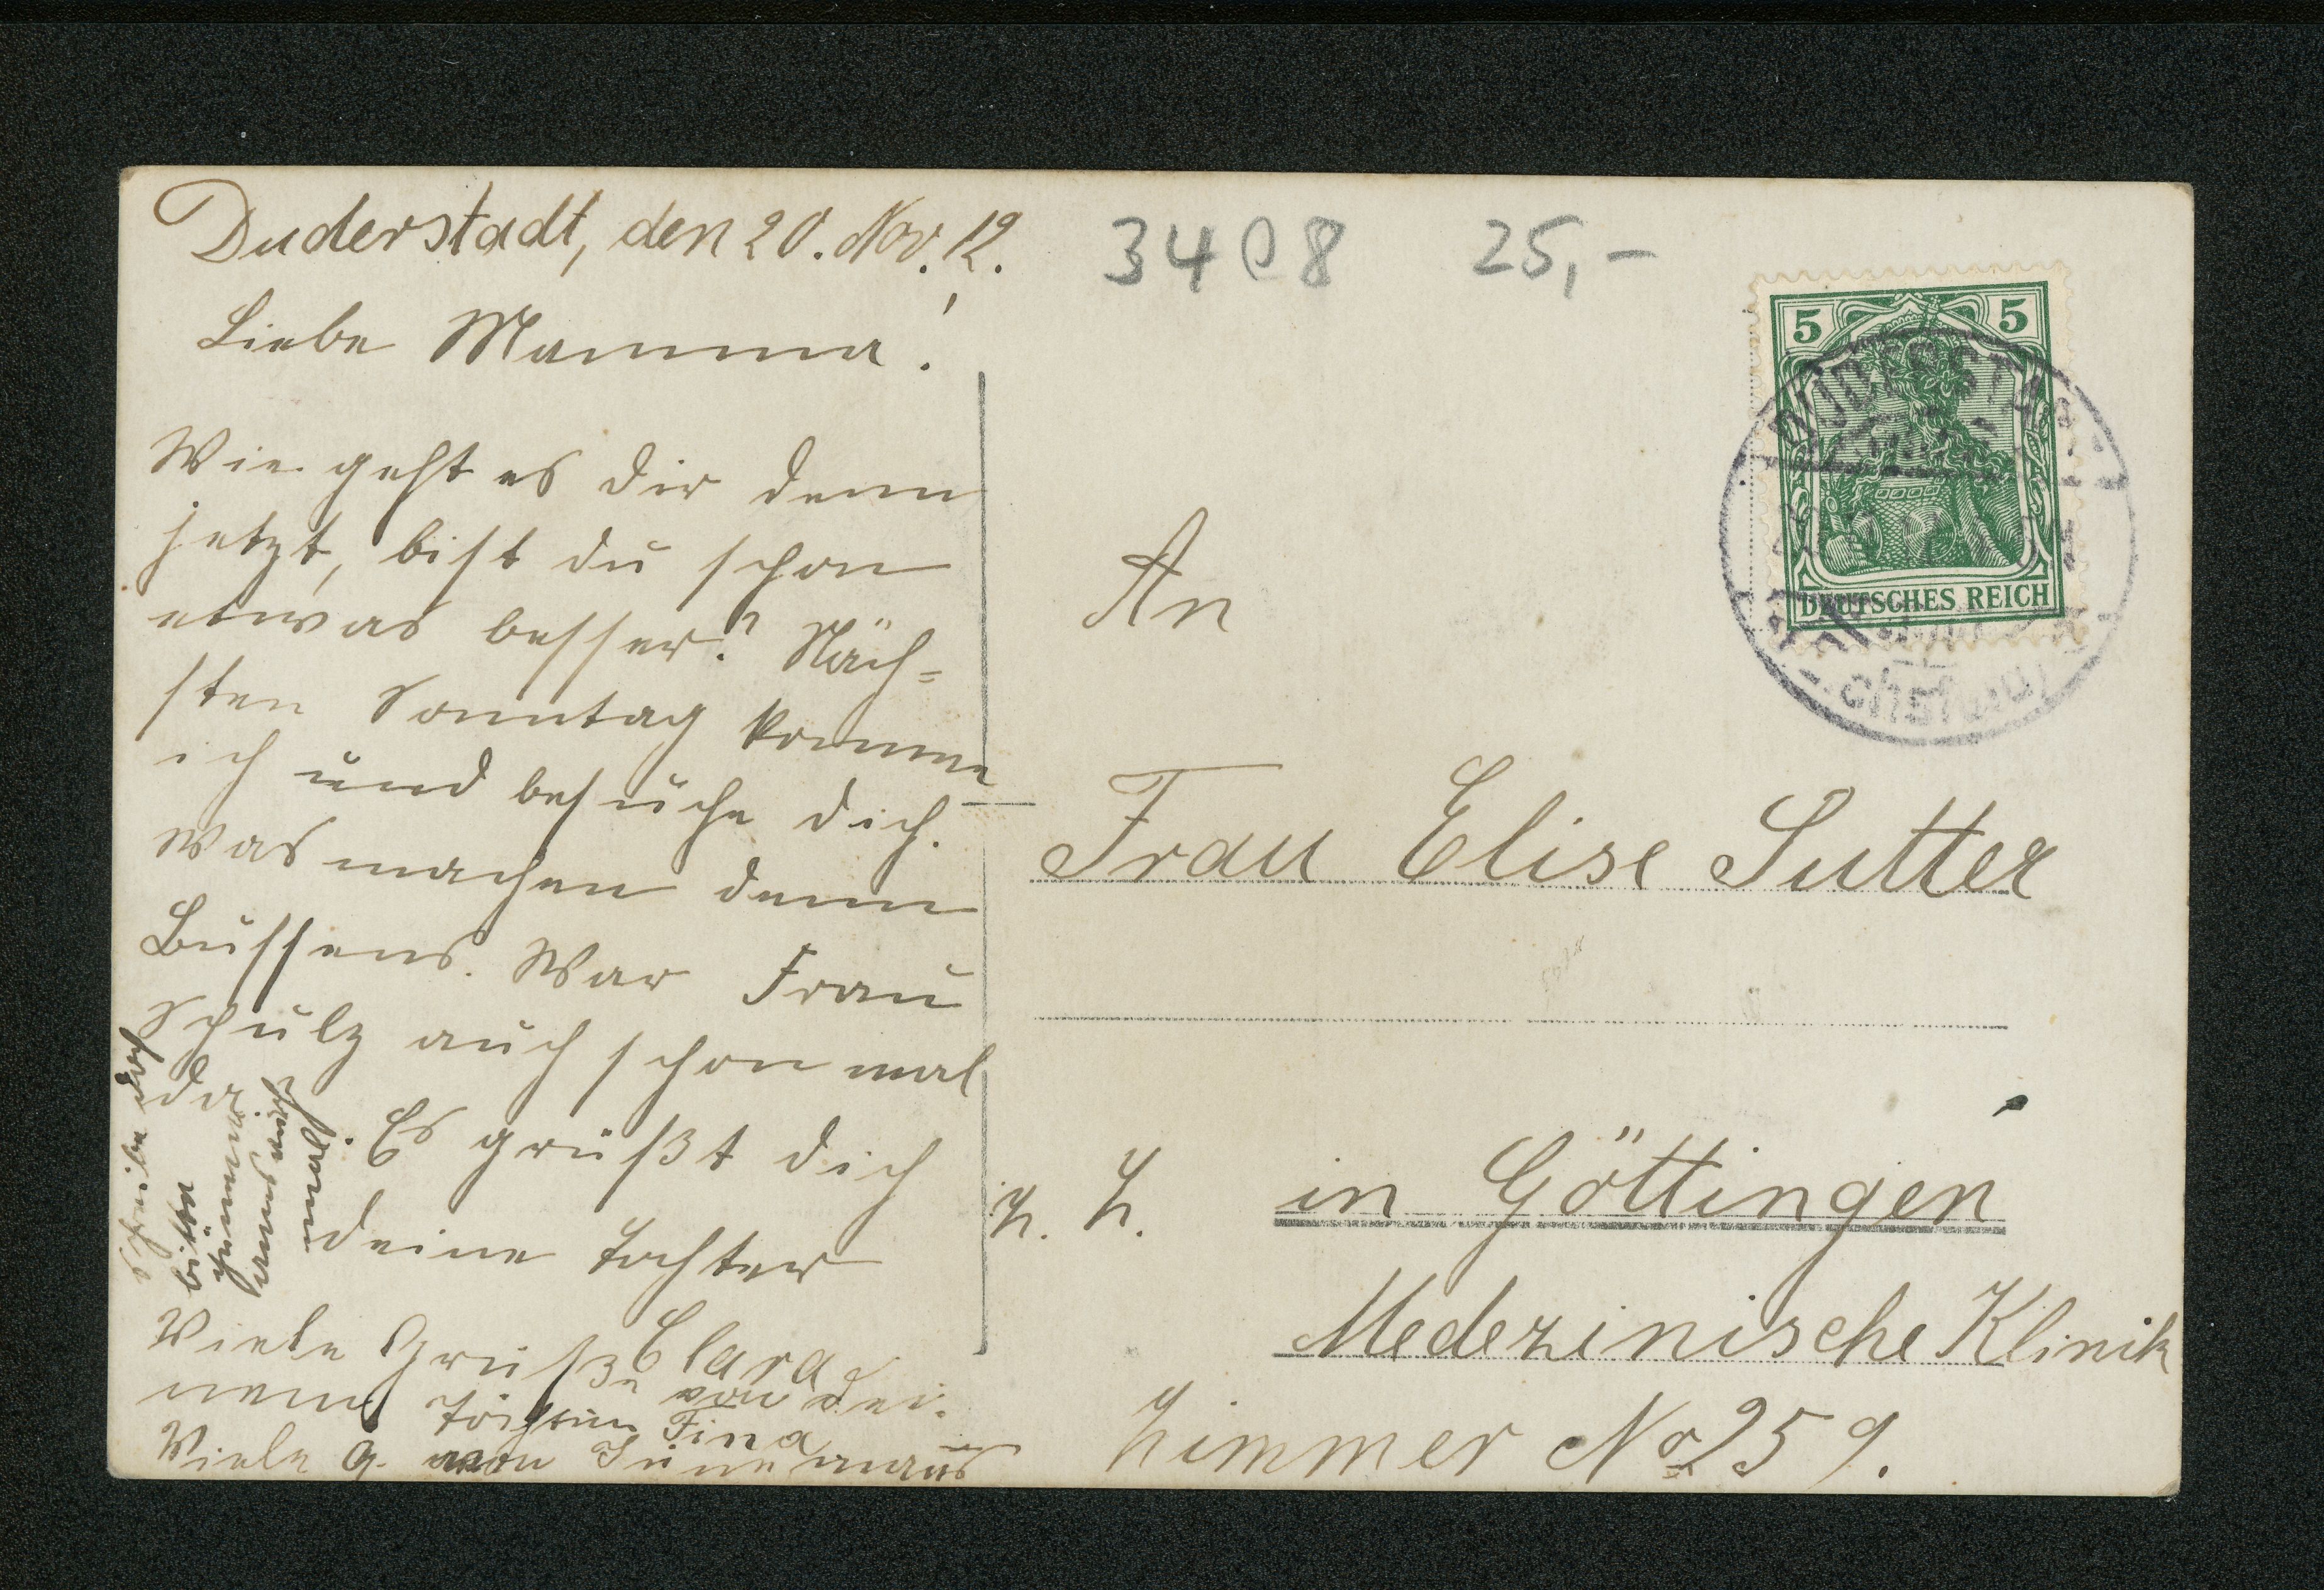 Duderstadt, den 20. Nov. 12.
Liebe Mamma!
Wie geht es dir denn
jetzt, bist du schon
etwas besser? Näch=
sten Sonntag komme
ich und besuche dich.
Was machen denn
Bussens. War Frau
Schulz auch schon mal
da. Es grüßt dich
deine Tochter
Clara
Viele Grüße von dei-
nem Töchterchen Fina
Viele G. von Jünemanns
Schreibe doch
bitte
Jünemanns
auch
mal
3408 25,-
5 5
DEUTSCHES REICH
DUDERSTADT
An
Frau Elise Sutter
z. Z. in Göttingen
Medezinische Klinik
Zimmer No 259.